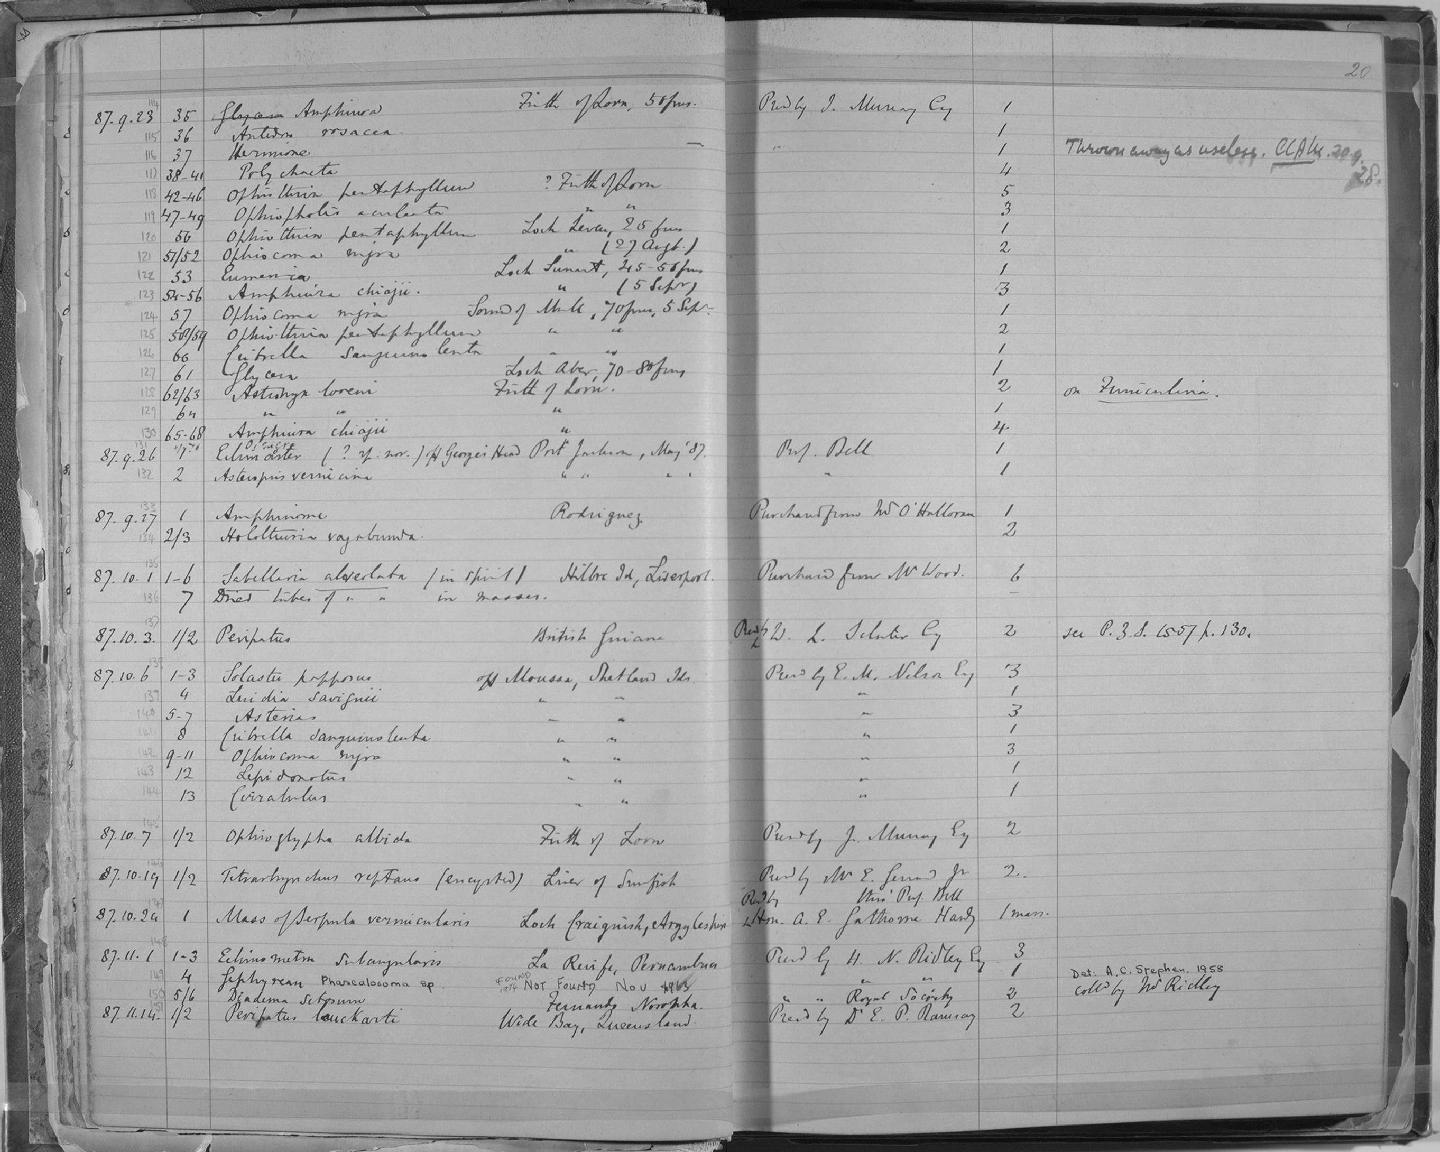 20
87.9.23 114 35 Glycera Amphiura Firth of Lorn, 50 fms. Presd by J. Murray Esq 1
115 36 Antedon rosacea 1
116 37 Hermione — " 1 Thrown away as useless.
117 38-41 Polychaeta 4
118 42-46 Ophiothrix pentaphyllum ? Firth of Lorn 5
119 47-49 Ophiopholis aculeata " " 3
120 50 Ophiothrix pentaphyllum Loch Levan, 25 fms 1
121 51/52 Ophiocoma nigra " (27 Augt.) 2
122 53 Eumenia Loch Sunart, 45-50 fms 1
123 54-56 Amphiura chiajii. " (5 Septr) 3
124 57 Ophiocoma nigra Sound of Mull, 70 fms, 5 Sepr. 1
125 58/59 Ophiothrix pentaphyllum " " 2
126 60 Cribrella sanguinolenta " " 1
127 61 Glycera Loch Aber, 70-80 fms 1
128 62/63 Asteronyx loveni Firth of Lorn. 2 on Funiculina.
129 64 " " " 1
130 65-68 Amphiura chiajii " 4
87.9.26 131 Echinaster (? sp. nov.) off George's Head Port Jackson, May '87. Prof. Bell 1
132 2 Asteropsis vernicina " " " " " 1
87.9.27 133 1 Amphinome Rodriguez Purchased from Mr O'Halloran 1
134 2/3 Holothuria vagabunda. 2
87.10.1 135 1-6 Sabellaria alveolata (in spirit) Hilbre Id, Liverpool. Purchased from Mr Wood. 6
136 7 Dried tubes of " " in masses. —
87.10.3. 137 1/2 Peripatus British Guiana Presd by W. L. Sclater Esq 2 see P.Z.S. 1887 p. 130.
87.10.6 138 1-3 Solaster papposus off Moussa, Shetland Ids Presd by E. M. Nelson Esq 3
139 4 Luidia savignii " " " 1
140 5-7 Asterias " " " 3
141 8 Cribrella sanguinolenta " " " 1
142 9-11 Ophiocoma nigra " " " 3
143 12 Lepidonotus " " " 1
144 13 Cirratulus " " " 1
87.10.7 145 1/2 Ophioglypha albida Firth of Lorn Presd by J. Murray Esq 2
87.10.19 146 1/2 Tetrarhynchus reptans (encysted) Liver of Sunfish Presd by Mr E. Gerrard Jr 2.
87.10.20 147 1 Mass of Serpula vermicularis Loch Craignish, Argyleshire Presd by Hon. A. E. Gathorne Hardy thro' Prof. Bell 1 mass.
87.11.1 148 1-3 Echinometra subangularis La Recife, Pernambuco Presd by H. N. Ridley Esq 3
149 4 Gephyrean Phascolosoma sp. FOUND 1974 NOT FOUND NOV 1963 " 1 Det: A.C. Stephen. 1958
150 5/6 Diadema setosum Fernando Noronha. " " Royal Society 2 colld by Mr Ridley
87.11.14. 1/2 Peripatus leuckarti Wide Bay, Queensland Presd by Dr E. P. Ramsay 2